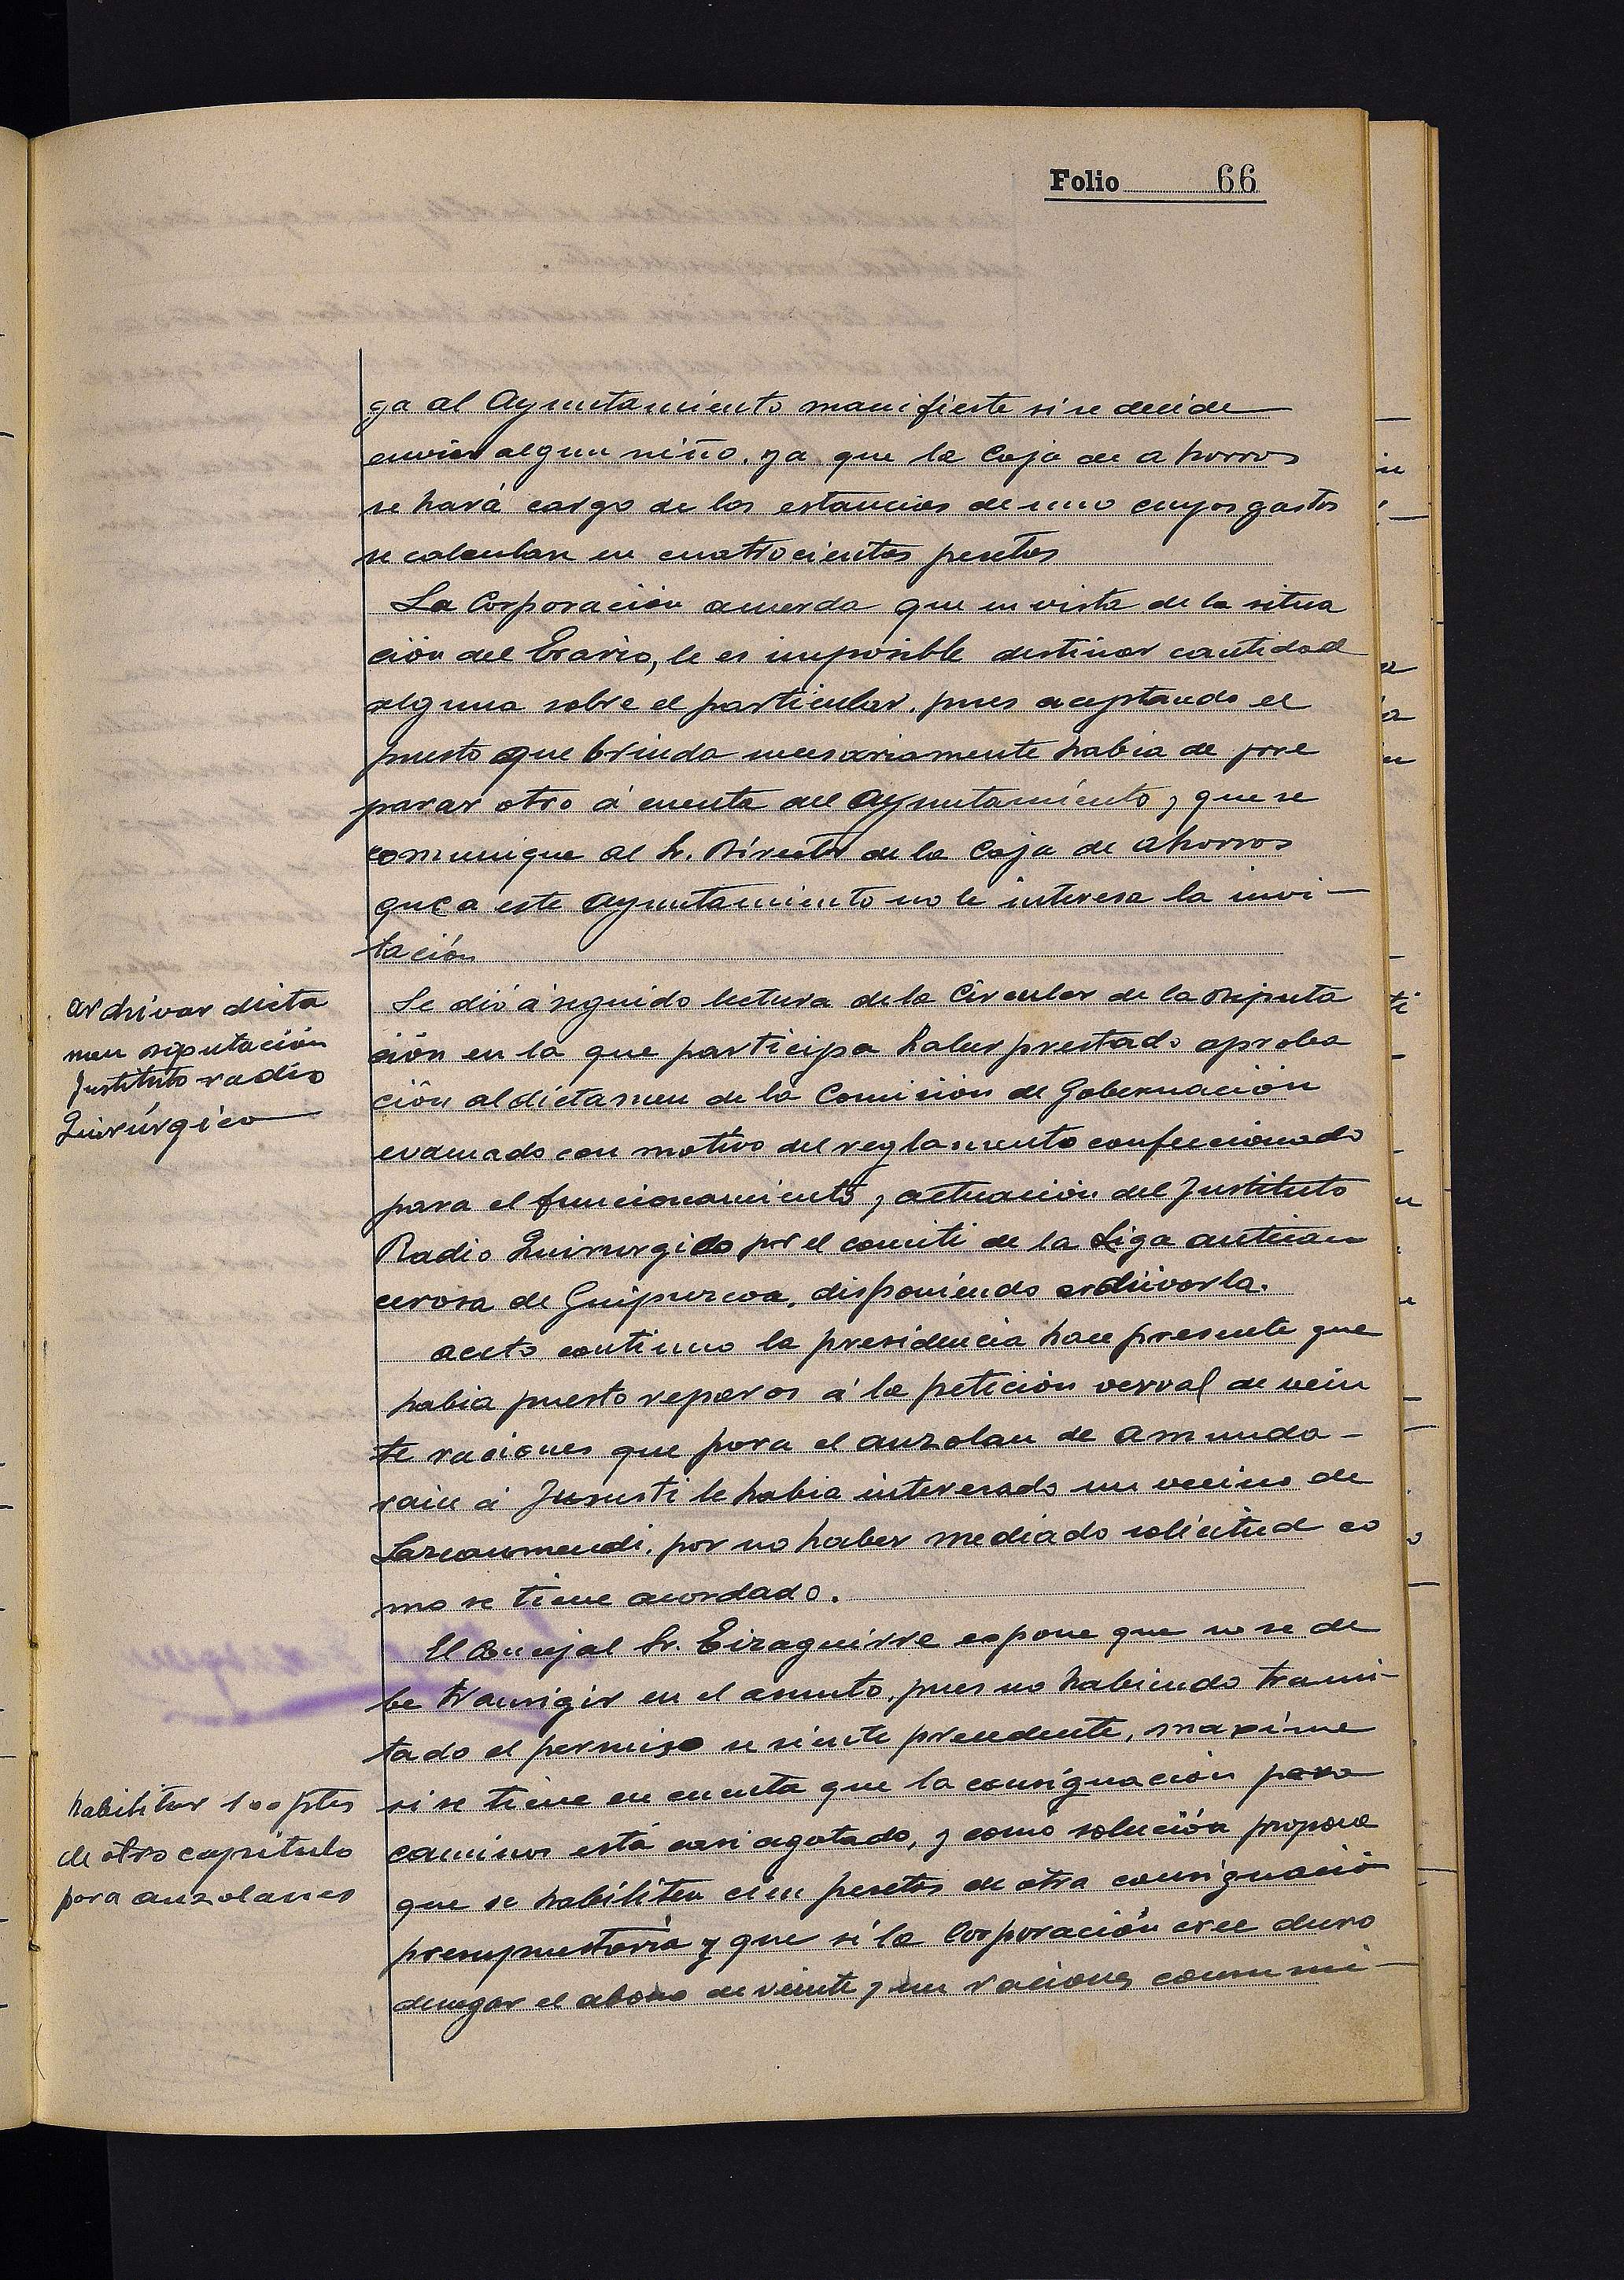 Folio 66
ga al Ayuntamiento manifieste si se decide
enviar algun niño, ya que la Caja de ahorros
se hará cargo de las estancias de uno cuyos gastos
se calculan en cuatrocientas pesetas
La Corporación acuerda que en vista de la situa
ción del Erario, le es imposible destinar cantidad
alguna sobre el particular, pues aceptando el
puesto que brinda necesariamente habia de pre
parar otro á cuenta del Ayuntamiento, y que se
comunique al Sr. Director de la Caja de ahorros
que a este Ayuntamiento no le interesa la invi-
tación
archivar dicta
men Diputación
Instituto radio
Quirúrgico
Se dió á seguido lectura de la Circular de la Diputa
ción en la que participa haber prestado aproba
ción al dictamen de la Comisión de Gobernación
evacuado con motivo del reglamento confeccionado
para el funcionamiento y actuación del Instituto
Radio Quirurgico por el comité de la Liga antican
cerosa de Guipuzcoa, disponiendo archivarla.
acto continuo la presidencia hace presente que
habia puesto reparos á la petición verval de vein
te raciones que para el auzolan de Amunda-
rain á Jususti le habia interesado un vecino de
Lazcaomendi, por no haber mediado solicitud co
mo se tiene acordado.
El Concejal Sr. Eizaguirre expone que no se de
be transigir en el asunto, pues no habiendo trami-
tado el permiso se siente precedente, maxime
si se tiene en cuenta que la consignación para
caminos está casi agotado, y como solución propone
que se habiliten cien pesetas de otra consignación
presupuestaria y que si la Corporación cree duro
denegar el abono de veinte y un raciones consumi-
habilitar 100 ptas
de otro capítulo
para auzolanes